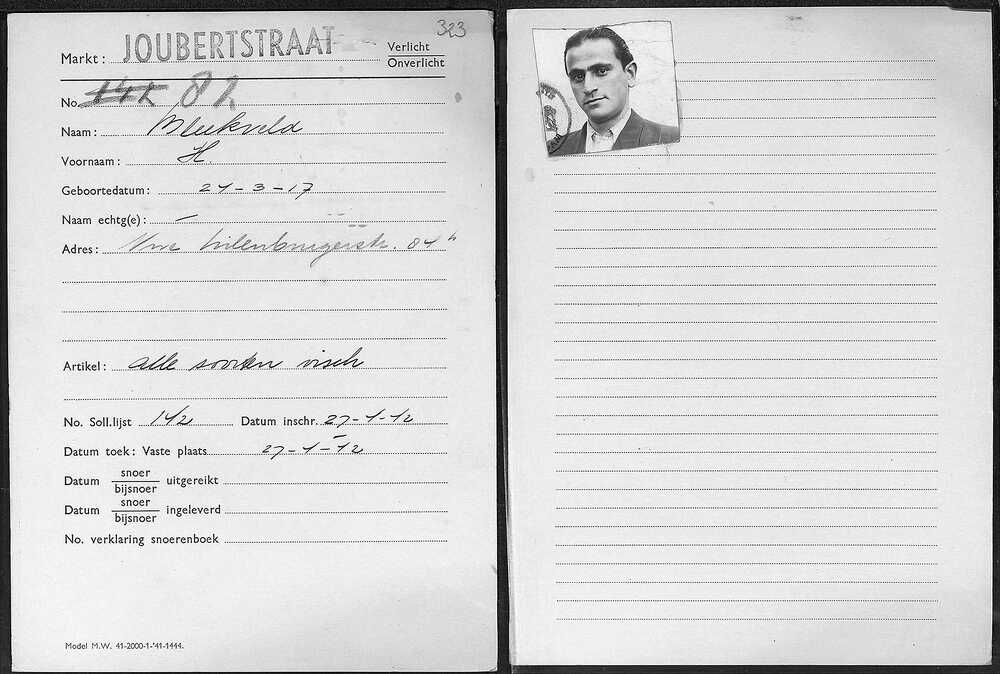 323
Markt: JOUBERTSTRAAT Verlicht
Onverlicht
No. 82
Naam: Bleekveld
Voornaam: H.
Geboortedatum: 21-3-17
Naam echtg(e): —
Adres: Nwe Uilenburgerstr. 84 h
Artikel: alle soorten visch
No. Soll.lijst 142 Datum inschr. 27-1-42
Datum toek: Vaste plaats 27-1-42
Datum snoer uitgereikt
bijsnoer
Datum snoer ingeleverd
bijsnoer
No. verklaring snoerenboek
Model M.W. 41-2000-1-'41-1444.